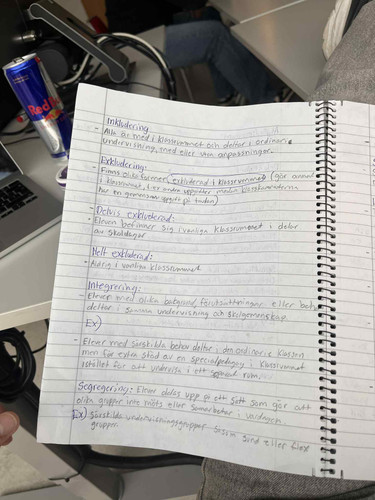 Red
Inkludering
- Alla är med i klassrummet och deltar i ordinarie
undervisning, med eller utan anpassningar.
Exkludering:
- Finns olika former, exkluderad i klassrummet (gör annat
i klassrummet, t.ex andra uppgifter medan klasskamraterna
har en gemensam uppgift på tavlan)
Delvis exkluderad:
- Eleven befinner sig i vanliga klassrummet i delar
av skoldagen
Helt exkluderad:
- Aldrig i vanliga klassrummet
Integrering:
- Elever med olika bakgrund, förutsättningar eller behov
deltar i samma undervisning och skolgemenskap.
Ex)
- Elever med särskilda behov deltar i den ordinarie klassen
men får extra stöd av en specialpedagog i klassrummet
istället för att undervisas i ett separat rum.
Segregering: Elever delas upp på ett sätt som gör att
olika grupper inte möts eller samarbetar i vardagen.
Ex) Särskilda undervisningsgrupper såsom sind eller flex
grupper.